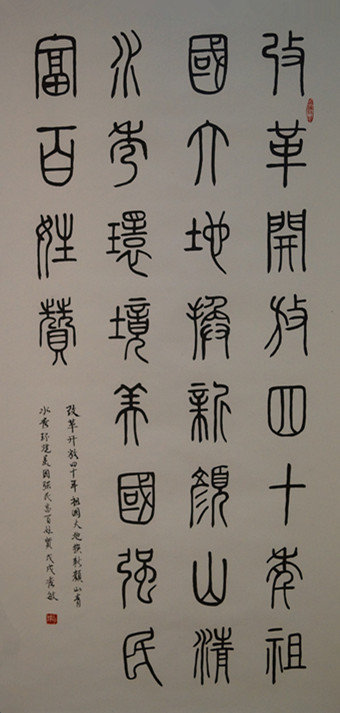 改革開放四十年祖
國大地換新顏山清
水秀環境美國强民
富百姓贊
改革开放四十年祖国大地换新颜山青
水秀环境美国强民富百姓赞戊戌